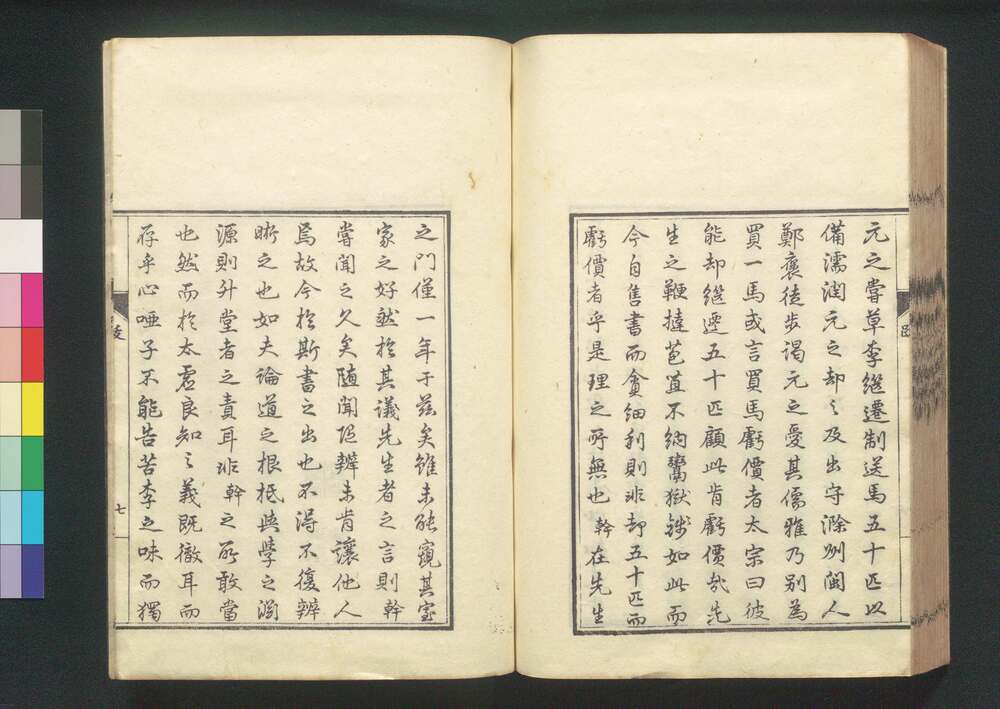 元之嘗草李繼遷制送馬五十匹以
備濡潤元之却之及出守滁州閩人
鄭褒徒步謁元之愛其儒雅乃别為
買一馬或言買馬虧價者太宗曰彼
能却繼遷五十匹顧此肯虧價哉先
生之鞭撻苞苴不納鬻獄錢如此而
今自售書而貪細利則非却五十匹而
虧價者乎是理之所無也幹在先生
之門僅一年于茲矣雖未能窺其室
家之好然於其議先生者之言則幹
嘗聞之久矣隨聞隨辨未肯讓他人
焉故今於斯書之出也不得不復辨
晰之也如夫論道之根柢與學之淵
源則升堂者之責耳非幹之所敢當
也然而於太虚良知之義既徹耳而
存乎心啞子不能告苦李之味而獨
七